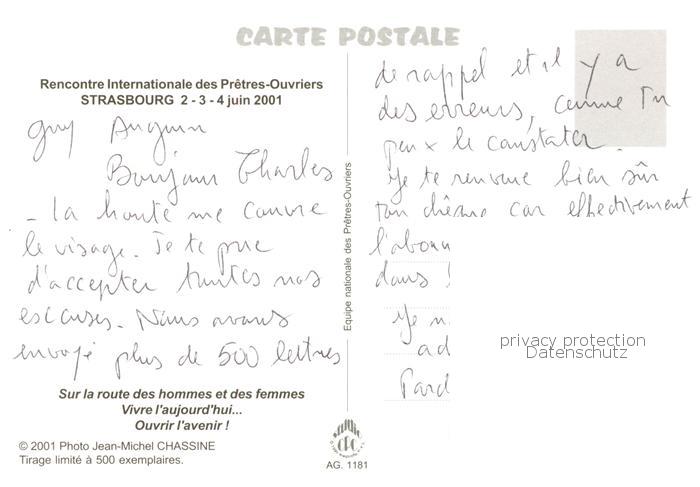 CARTE POSTALE
Rencontre Internationale des Prêtres-Ouvriers
STRASBOURG 2 - 3 - 4 juin 2001
Guy
Bonjour Charles
- La honte me couvre
le visage. Je te prie
d'accepter toutes nos
escuses. Nous avons
envoyé plus de 500 lettres
Sur la route des hommes et des femmes
Vivre l'aujourd'hui...
Ouvrir l'avenir !
© 2001 Photo Jean-Michel CHASSINE
Tirage limité à 500 exemplaires.
Equipe nationale des Prêtres-Ouvriers
AG. 1181
de rappel et il y a
des erreurs, comme Tu
peux le constater.
Je te renvoie bien sûr
ton chèque car effectivement
l'abonn
dans
Je n
ad
Pard
privacy protection
Datenschutz